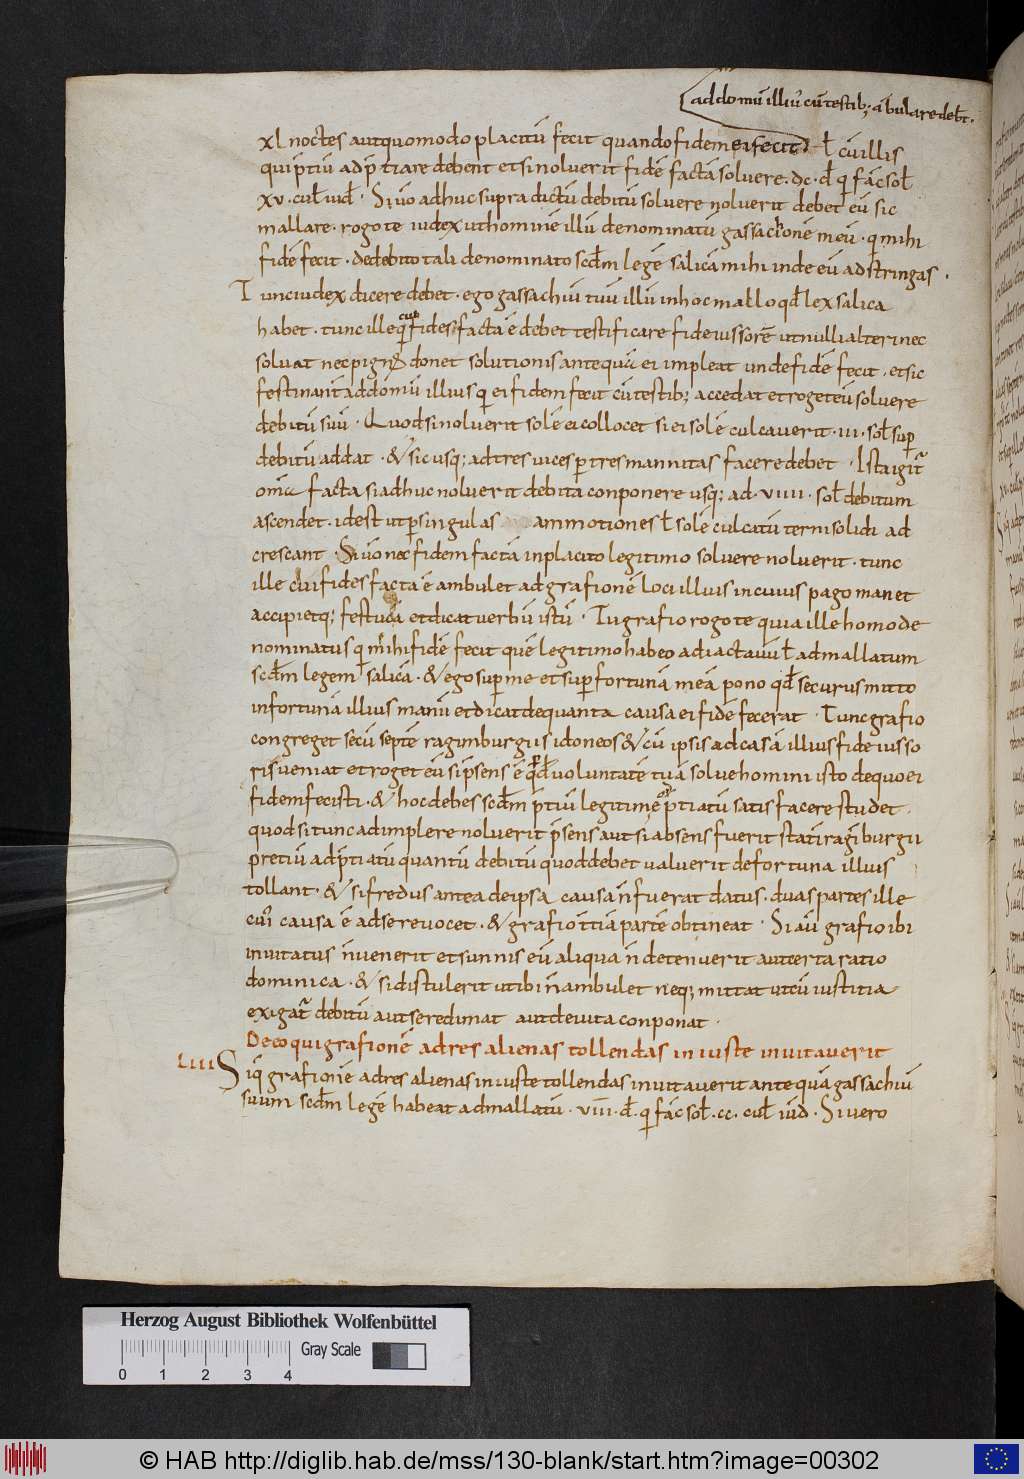 ad domū illiuſ cū testib; ābulare deb&.
xl noctes aut quomodo placitū fecit quando fidem ei fecit ł cū illis
qui p̄tiū adp̄tiare debent et si noluerit fidē factā soluere. dc. đ qi fac̄ sol̄
xv. cul̄ iud̄. Si ū adhuc supra dictū debitū soluere noluerit debet eū sic
mallare. rogo te iudex ut hominē illū denominatū gassachionē meū. qi mihi
fidē fecit. de debito tali denominato sc̄dm legē salicā mihi inde eū adstringas.
Tunc iudex dicere debet. ego gassachiū tuū illū in hoc mallo qđ lex salica
habet. tunc ille cui fides facta ē debet testificare fideiussorē ut nulli alteri nec
soluat nec pignus donet solutionis antequā ei impleat unde fidē fecit. et sic
festinant̄ ad domū illius qi ei fidem fecit cū testib; accedat et roget eū soluere
debitū suū. Quod si noluerit solē ei collocet si ei solē culcauerit. iii. sol̄ sup̄
debitū addat. & sic usq; ad tres uices per tres mannitas facere debet. Ista igit̄
om̄ia facta si adhuc noluerit debita conponere usq; ad. viiii. sol̄ debitum
ascendet. id est ut p̄ singulas ammotiones ł sole culcatū terni solidi ad
crescant. Si ū nec fidem factā in placito legitimo soluere noluerit. tunc
ille cui fides facta ē ambulet ad grafionē loci illius in cuius pago manet
accipietq; festucā et dicat uerbū istū. Tu grafio rogo te quia ille homo de
nominatus qi mihi fidē fecit quē legitimo habeo adiactauū ł admallatum
sc̄dm legem salicā. & ego sup̄ me et sup̄ fortunā meā pono qđ securus mitto
in fortunā illius manū et dicat de quanta causa ei fidē fecerat. Tunc grafio
congreget secū septē raginburgiis idoneos & cū ipsis ad casā illius fideiusso
ris ueniat et roget eū si p̄sens ē qđ uoluntatē tuā solue homini isto de quo ei
fidem fecisti. & hoc debes sc̄dm p̄tiū legitime p̄tiatū satisfacere studet.
quod si tunc adimplere noluerit p̄sens aut si absens fuerit stati ragiburgii
pretiū adp̄tiatū quantū debitū quod debet ualuerit de fortuna illius
tollant. & si fredus antea de ipsa causa n̄ fuerat datus. duas partes ille
cui causa ē ad se reuocet. & grafio tertiā partē obtineat. Si aū grafio ibi
inuitatus n̄ uenerit et sunnis eū aliqua n̄ detenuerit aut certa ratio
dominica. & si distulerit ut ibi n̄ ambulet neq; mittat ut cū iustitia
exigat̄ debitū aut se redimat aut de uita conponat.
De eo qui grafionē ad res alienas tollendas iniuste inuitauerit
LIII Siq̄ grafionē ad res alienas iniuste tollendas inuitauerit antequā gassachiū
suum sc̄dm legē habeat admallatū. viii. đ. qi fac̄ sol̄. cc. cul̄ iud̄. Si uero
Herzog August Bibliothek Wolfenbüttel
Gray Scale
0 1 2 3 4
© HAB http://diglib.hab.de/mss/130-blank/start.htm?image=00302